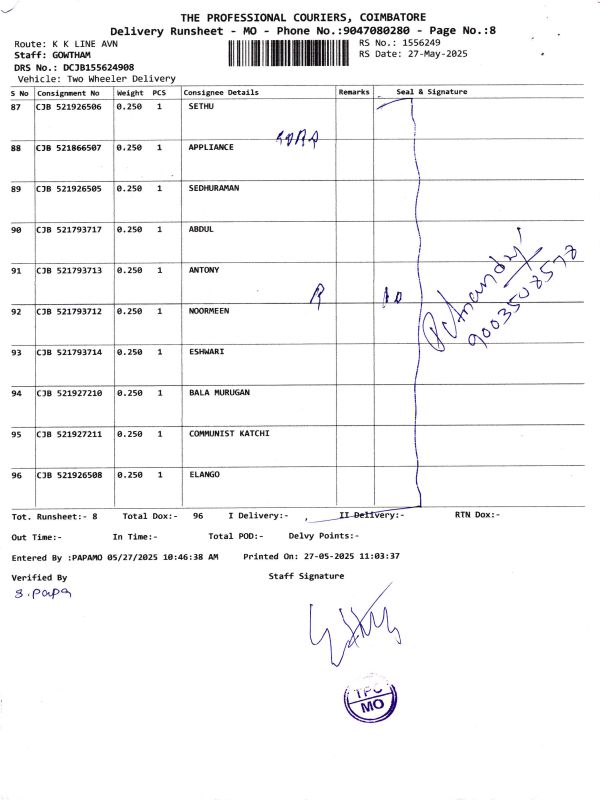 THE PROFESSIONAL COURIERS, COIMBATORE
Delivery Runsheet - MO - Phone No.:9047080280 - Page No.:8
Route: K K LINE AVN
RS No.: 1556249
Staff: GOWTHAM
RS Date: 27-May-2025
DRS No.: DCJB155624908
Vehicle: Two Wheeler Delivery
S No Consignment No Weight PCS Consignee Details Remarks Seal & Signature
87 CJB 521926506 0.250 1 SETHU
88 CJB 521866507 0.250 1 APPLIANCE
89 CJB 521926505 0.250 1 SEDHURAMAN
90 CJB 521793717 0.250 1 ABDUL
91 CJB 521793713 0.250 1 ANTONY
92 CJB 521793712 0.250 1 NOORMEEN
93 CJB 521793714 0.250 1 ESHWARI
94 CJB 521927210 0.250 1 BALA MURUGAN
95 CJB 521927211 0.250 1 COMMUNIST KATCHI
96 CJB 521926508 0.250 1 ELANGO
9003508578
Tot. Runsheet:- 8 Total Dox:- 96 I Delivery:- II Delivery:- RTN Dox:-
Out Time:- In Time:- Total POD:- Delvy Points:-
Entered By :PAPAMO 05/27/2025 10:46:38 AM Printed On: 27-05-2025 11:03:37
Verified By Staff Signature
S. Papa
TPC
MO